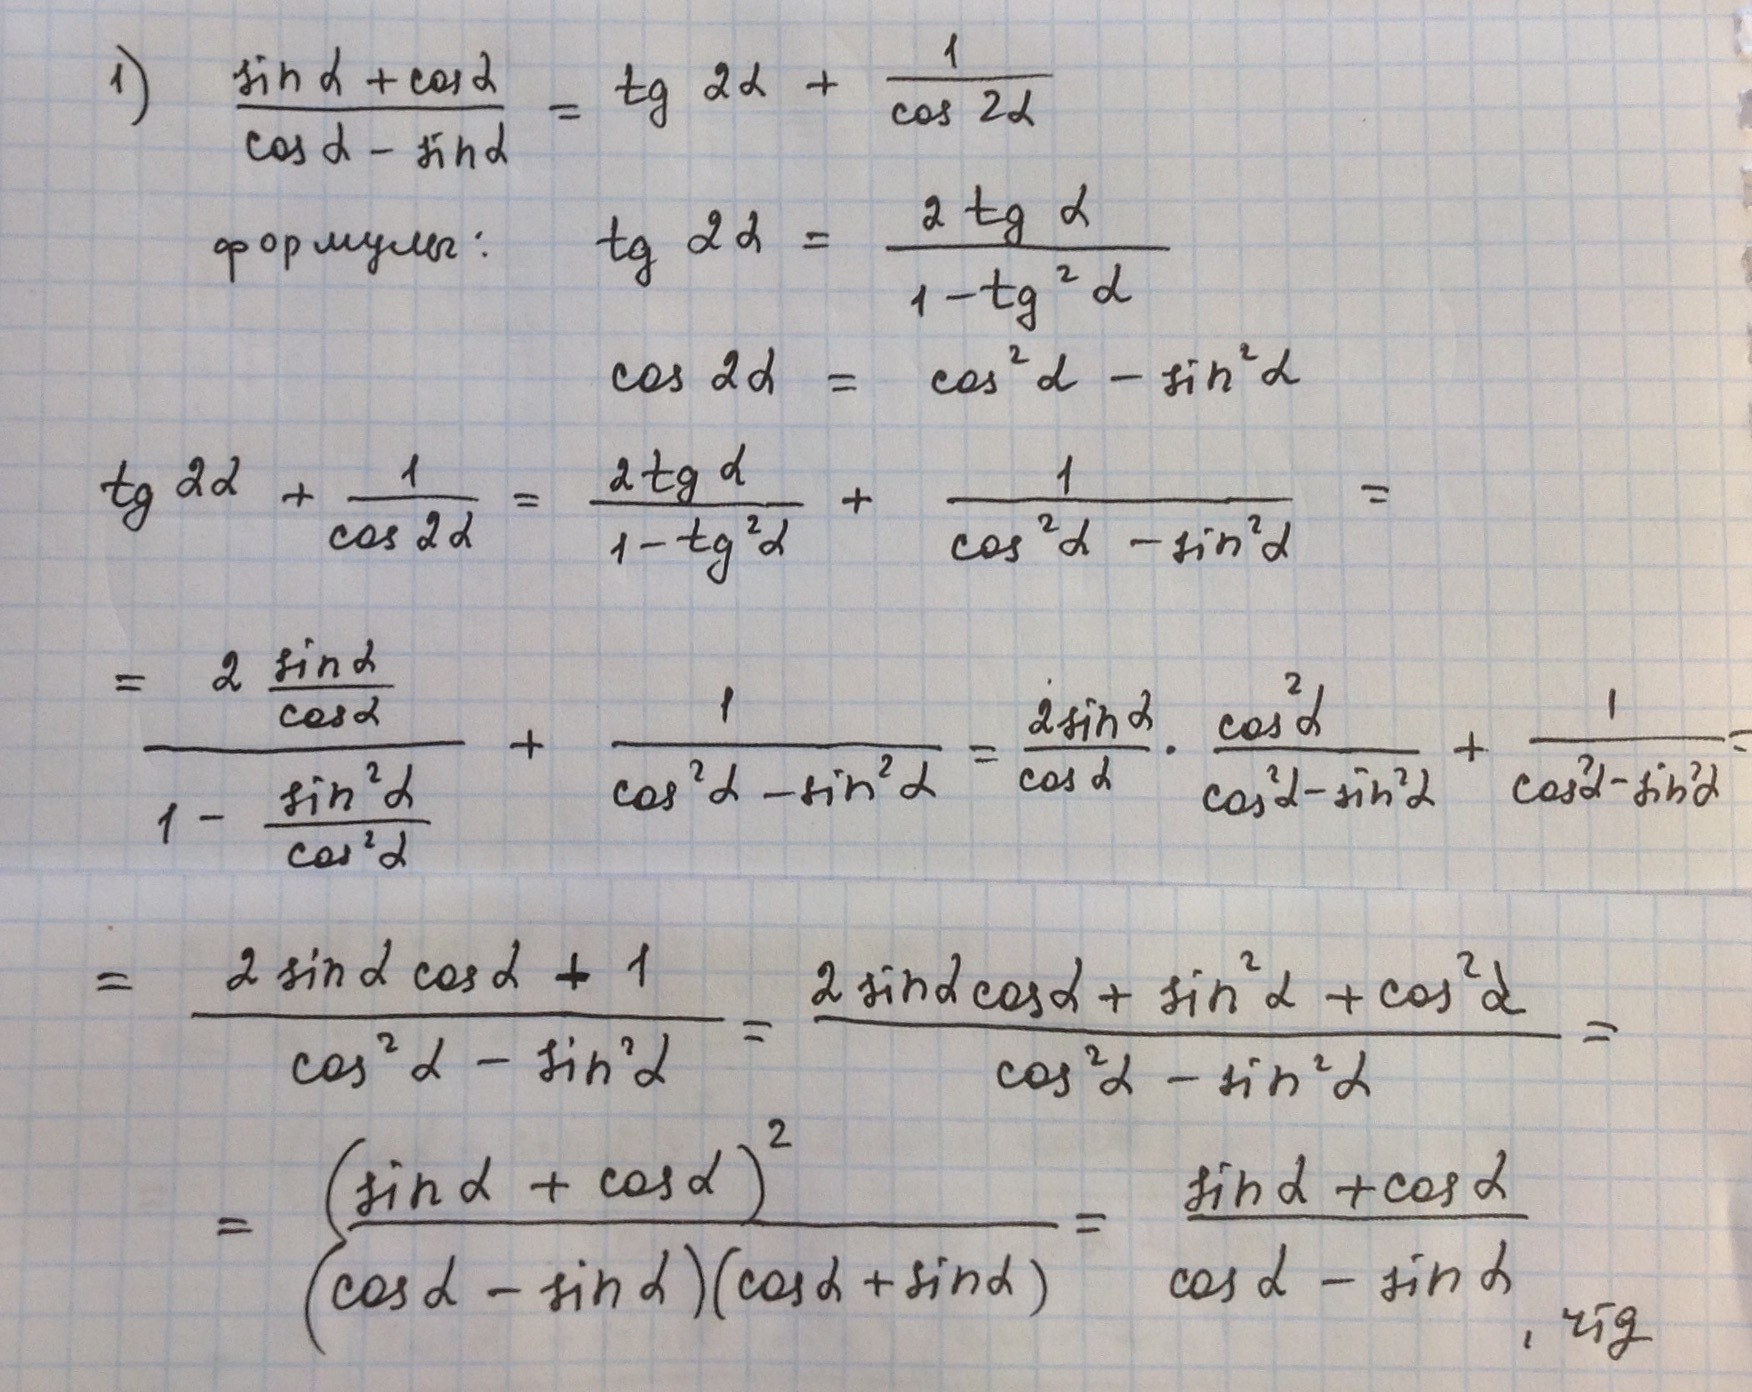 1) (sin α + cos α)/(cos α − sin α) = tg 2α + 1/(cos 2α)
формулы: tg 2α = (2 tg α)/(1 − tg² α)
cos 2α = cos² α − sin² α
tg 2α + 1/(cos 2α) = (2 tg α)/(1 − tg² α) + 1/(cos² α − sin² α) =
= (2 (sin α)/(cos α))/(1 − (sin² α)/(cos² α)) + 1/(cos² α − sin² α) = (2 sin α)/(cos α) · (cos² α)/(cos² α − sin² α) + 1/(cos² α − sin² α) =
= (2 sin α cos α + 1)/(cos² α − sin² α) = (2 sin α cos α + sin² α + cos² α)/(cos² α − sin² α) =
= (sin α + cos α)²/((cos α − sin α)(cos α + sin α)) = (sin α + cos α)/(cos α − sin α)